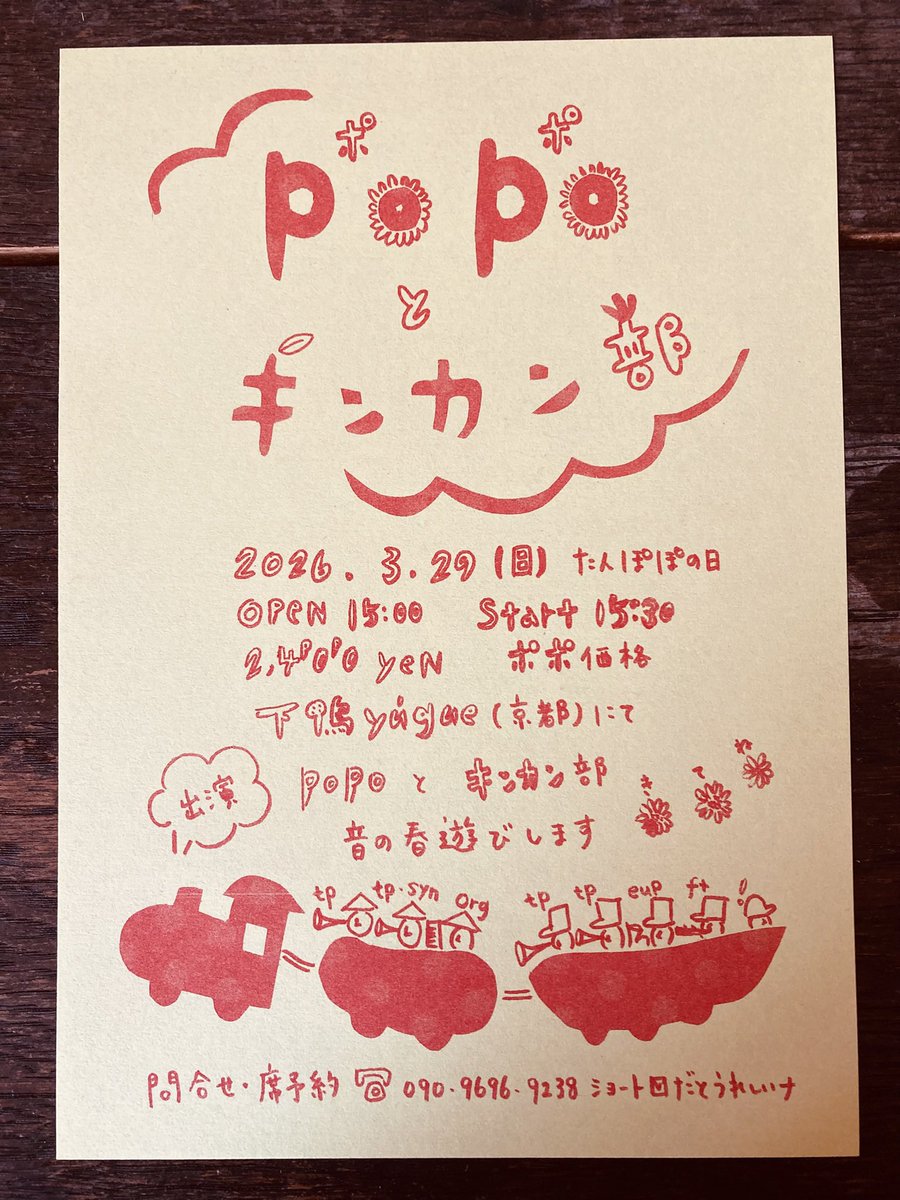 ポ ポ
popo
と
キンカン部
2026.3.29(日) たんぽぽの日
OPEN 15:00 Start 15:30
2,400 yen ポポ価格
下鴨yúgue(京都)にて
出演 popo と キンカン部
音の春遊びします
きてね
tp tp.syn org tp tp eup ft
問合せ・席予約 ☎ 090.9696.9238 ショートメだとうれしいナ